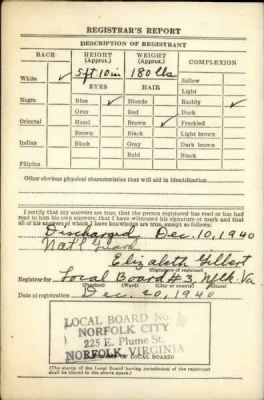 REGISTRAR'S REPORT
DESCRIPTION OF REGISTRANT
RACE HEIGHT (Approx.) WEIGHT (Approx.) COMPLEXION
White ✓ 5 ft 10 in 180 lbs Sallow
EYES HAIR Light
Negro Blue ✓ Blonde Ruddy ✓
Gray Red Dark
Oriental Hazel Brown ✓ Freckled
Brown Black Light brown
Indian Black Gray Dark brown
Bald Black
Filipino
Other obvious physical characteristics that will aid in identification
I certify that my answers are true; that the person registered has read or has had
read to him his own answers; that I have witnessed his signature or mark and that
all of his answers of which I have knowledge are true, except as follows:
Discharged Dec. 10, 1940
Nat'l Guard
Elizabeth Gilbert
(Signature of registrar)
Registrar for Local Board #3 Nflk Va
(Precinct) (Ward) (City or county) (State)
Date of registration Dec. 20, 1940
LOCAL BOARD No.
NORFOLK CITY
225 E. Plume St.
NORFOLK, VIRGINIA
(The stamp of the Local Board having jurisdiction of the registrant
shall be placed in the above space.)